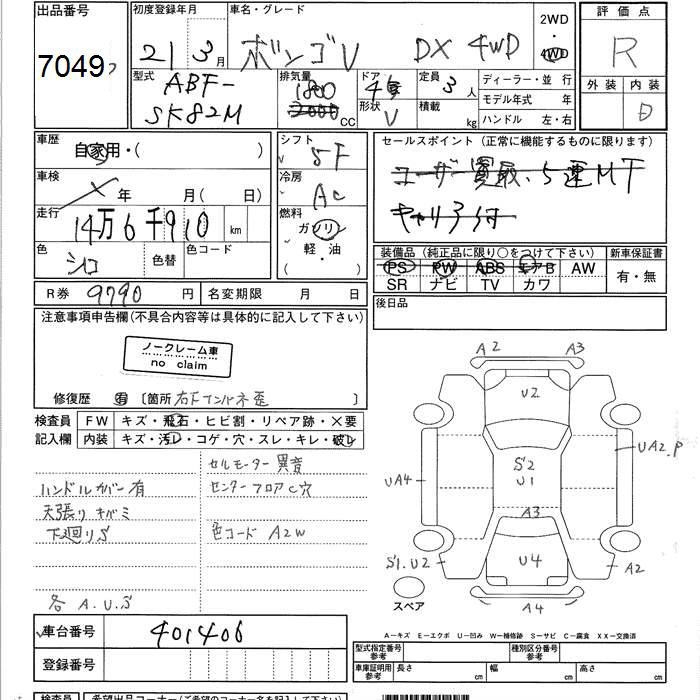 出品番号
7049
初度登録年月
21年3月
車名・グレード
ボンゴV DX 4WD
2WD
4WD
評価点
R
外装 内装
D
型式
ABF-
SK82M
排気量
1800
2000 CC
ドア
4
形状
V
定員
3人
積載
kg
ディーラー・並行
モデル年式 年
ハンドル 左・右
車歴
自家用・( )
シフト
5F
セールスポイント(正常に機能するものに限ります)
ユーザー買取、5速MT
キャリア付
車検
年 月( 日)
冷房
AC
走行
14万6千910 km
燃料
ガソリン
軽・油
色
シロ
色替
色コード
装備品(純正品に限り○をつけて下さい)
PS PW ABS エアB AW
SR ナビ TV カワ
新車保証書
有・無
R券 9790円
名変期限 月 日
後日品
注意事項申告欄(不具合内容等は具体的に記入して下さい)
ノークレーム車
no claim
修復歴 有 〔箇所 右Fインパネ歪 〕
検査員
記入欄
FW キズ・飛石・ヒビ割・リペア跡・×要
内装 キズ・汚れ・コゲ・穴・スレ・キレ・破れ
セルモーター異音
ハンドルカバー有
センターフロアC穴
天張りキバミ
下廻りS
色コード A2W
各 A.U.S
A2 A3
U2
UA2.P
S2
U1
UA4
A3
S1.U2
U4
A2
A4
スペア
車台番号 401406
登録番号
A―キズ E―エクボ U―凹み W―補修跡 S―サビ C―腐食 XX―交換済
型式指定番号
参考
種別区分番号
参考
車庫証明用
参考
長さ cm
幅 cm
高さ cm
検査員
希望出品コーナー(ご希望のコーナー名